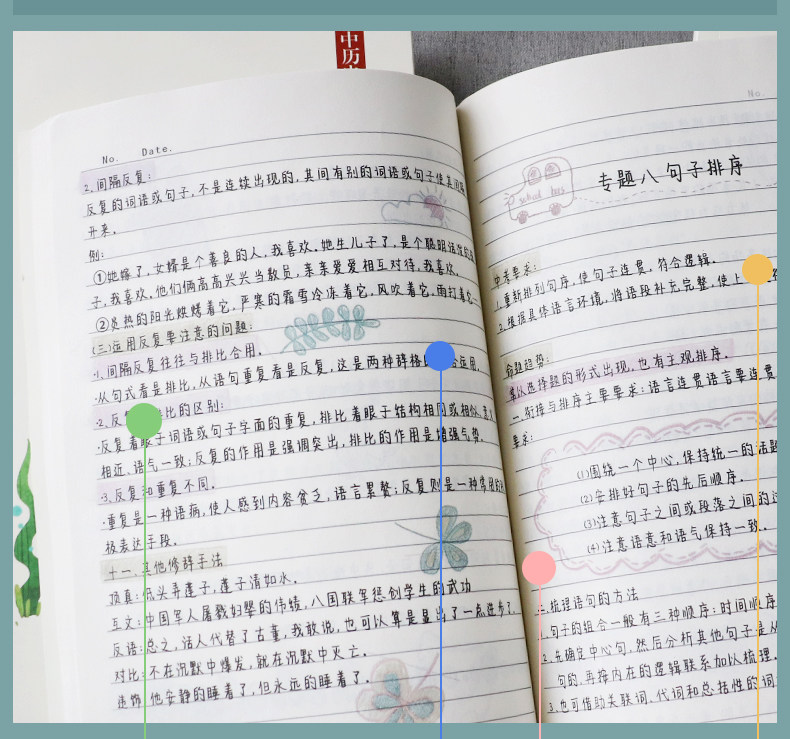 中历
No. Date.
2.间隔反复:
反复的词语或句子,不是连续出现的,其间有别的词语或句子使其间隔
开来。
例:
①她嫁了,女婿是个善良的人,我喜欢。她生儿子了,是个聪明活泼的孩
子,我喜欢。他们俩高高兴兴当教员,亲亲爱爱相互对待,我喜欢。
②炎热的阳光烘烤着它,严寒的霜雪冷冻着它,风吹着它,雨打着它…
(三)运用反复要注意的问题:
·1.间隔反复往往与排比合用。
·从句式看是排比,从语句重复看是反复,这是两种辞格 合运用。
·2.反 比的区别:
·反复着眼于词语或句子字面的重复,排比着眼于结构相同或相似、意义
相近、语气一致;反复的作用是强调突出,排比的作用是增强气势。
·3.反复和重复不同。
·重复是一种语病,使人感到内容贫乏,语言累赘;反复则是一种常用的积
极表达手段。
十一、其他修辞手法
顶真:低头弄莲子,莲子清如水。
互文:中国军人屠戮妇婴的伟绩,八国联军惩创学生的武功
反语:总之,活人代替了古董,我敢说,也可以算是显出了一点进步了。
对比:不在沉默中爆发,就在沉默中灭亡。
迭饰 他安静的睡着了,但永远的睡着了。
No.
school bus
专题八 句子排序
中考要求:
1.重新排列句序,使句子连贯,符合逻辑。
2.根据具体语言环境,将语段补充完整,使上
命题趋势:
常以选择题的形式出现,也有主观排序。
一、衔接与排序主要要求:语言连贯语言要连贯
要求:
(1)围绕一个中心,保持统一的话题
(2)安排好句子的先后顺序。
(3)注意句子之间或段落之间的
(4)注意语意和语气保持一致。
二.梳理语句的方法
1.句子的组合一般有三种顺序:时间顺序
2.先确定中心句,然后分析其他句子是从
句的,再按内在的逻辑联系加以梳理。
3.也可借助关联词、代词和总括性的词